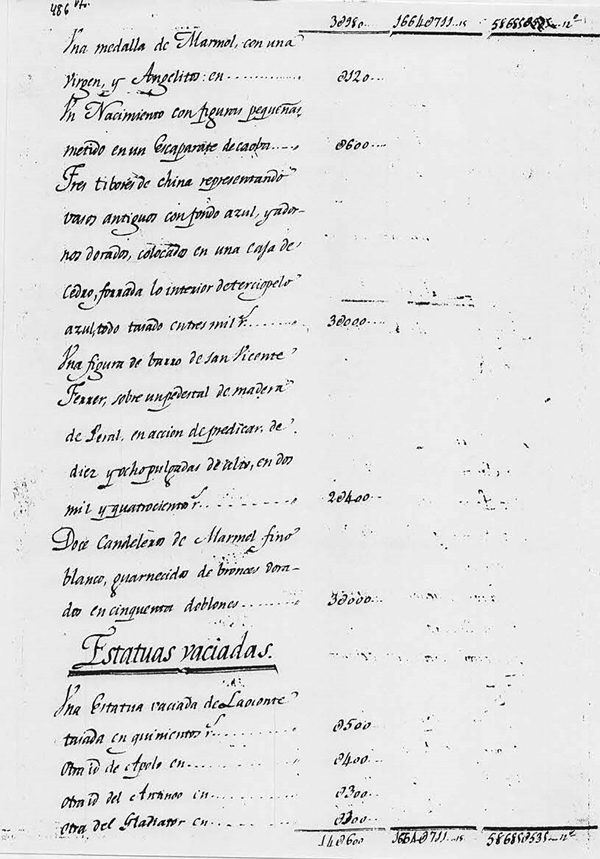 486 vto.
3θ980.. 1664θ711..15 5868θ535..n.e
Una medalla de Marmol, con una
Virgen, y Angelitos: en........... θ120...
Un Nacimiento con figuras pequeñas,
metido en un Escaparate de caoba..... θ600...
Tres tibores de china representando
vasos antiguos con fondo azul, y ador-
nos dorados, colocados en una caja de
Cedro, forrada lo interior de terciopelo
azul, todo tasado en tres mil rs........ 3θ000...
Una figura de barro de san Vicente
Ferrer, sobre un pedestal de madera
de Peral, en accion de predicar, de
diez y ocho pulgadas de alto, en dos
mil y quatrocientos rs.......... 2θ400...
Doce Candeleros de Marmol fino
blanco, guarnecidos de bronces dora-
dos en cinquenta doblones....... 3θ000...
Estatuas vaciadas.
Una Estatua vaciada de Laoconte
tasada en quinientos rs......... θ500...
Otra id de Apolo en........... θ400...
otra id del Antinoo en......... θ300...
otra del Gladiator en.......... θ300...
14θ600.. 1664θ711..15 5868θ535..n.e